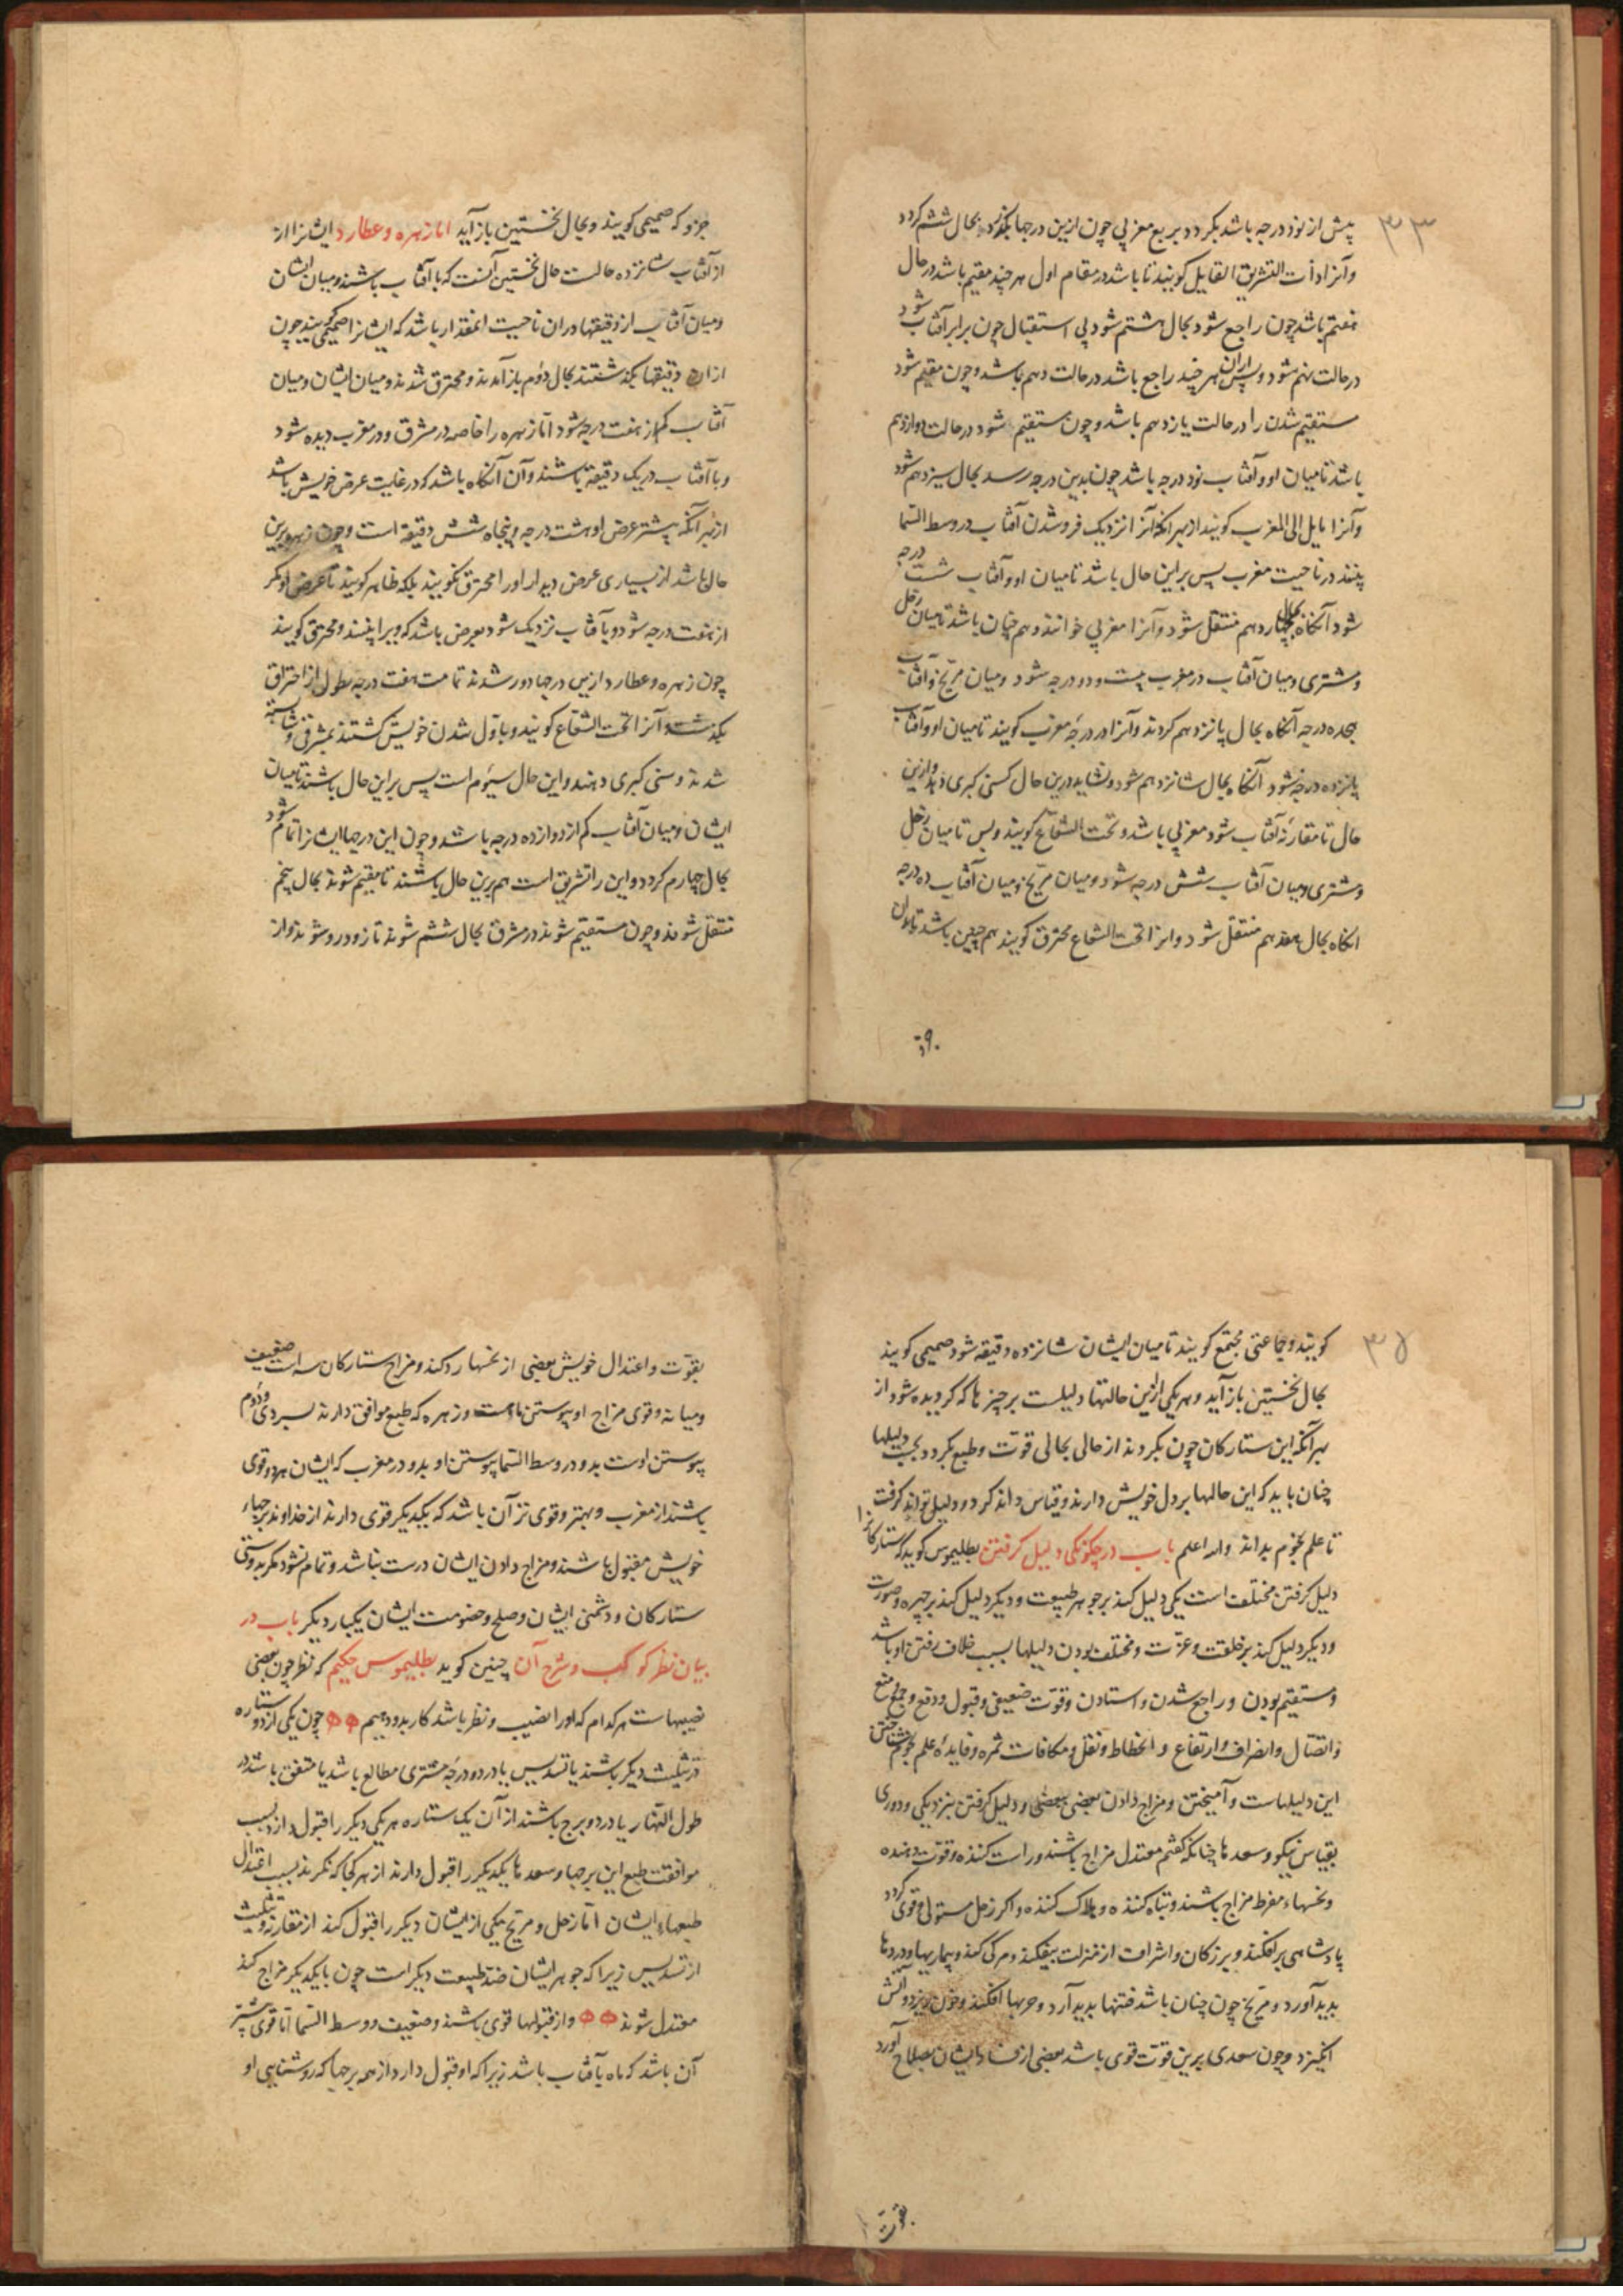 ۳۳
پیش از نود درجه باشد بگردد بربع مغربی چون ازین درجها بگذرد بحال ششم گردد
وآنرا ذات التشریق القایل گویند تا باشد در مقام اول هر چند مقیم باشد در حال
هفتم باشد چون راجع شود بحال هشتم شود پی استقبال چون برابر آفتاب شود
در حالت نهم شود و پس ازان هر چند راجع باشد در حالت دهم باشد و چون مقیم شود
مستقیم شدن را در حالت یازدهم باشد و چون مستقیم شود در حالت دوازدهم
باشد تا میان او و آفتاب نود درجه باشد چون بدین درجه رسد بحال سیزدهم شود
وآنرا مایل الی المغرب گویند از بهر آنکه آنرا نزدیک فرو شدن آفتاب در وسط السما
بینند در ناحیت مغرب پس براین حال باشد تا میان او و آفتاب شست درجه
شود آنکاه بحال چهاردهم منتقل شود وآنرا مغربی خوانند و هم چنان باشد تا میان زحل
و مشتری و میان آفتاب در مغرب بیست و دو درجه شود و میان مریخ و آفتاب
هجده درجه آنکاه بحال پانزدهم کردند وآنرا در درجهٔ مغرب گویند تا میان او و آفتاب
پانزده درجه شود آنکاه بحال شانزدهم شود و نشاید درین حال کسنی کبری دهد و ازین
حال تا مقارنه آفتاب شود مغربی باشد و تحت الشعاع گویند و پس تا میان زحل
و مشتری و میان آفتاب شش درجه شود و میان مریخ و میان آفتاب ده درجه
انکاه بحال هفدهم منتقل شود وانرا تحت الشعاع محترق گویند هم چنین باشد تا بدان
جزو که صمیمی گویند و بحال نخستین باز آید اما زهره و عطارد ایشانرا از
از آفتاب شانزده حالت حال نخستین آنست که با آفتاب باشند و میان ایشان
و میان آفتاب از دقیقها دران ناحیت انمقدار باشد که ایشانرا صمیمی گویند چون
ازان دقیقها بگذشتند بحال دوُم باز آمدند و محترق شدند و میان ایشان و میان
آفتاب کم از هفت درجه شود امّا زهره را خاصه در مشرق و در مغرب دیده شود
و با آفتاب در یک دقیقه باشند و آن آنکاه باشد که در غایت عرض خویش باشد
از بهر آنکه بیشتر عرض او هشت درجه و پنجاه شش دقیقه است و چون زهره برین
حال باشد از بسیاری عرض دیدار او را محترق نگویند بلکه ظاهر گویند تا عرض او مگر
از هفت درجه شود و بآفتاب نزدیک شود بعرض باشد که ویرا بینند و محترق گویند
چون زهره و عطارد ازین درجها دور شدند تمامت هفت درجه بطول از احتراق
بگذشت و آنرا تحت الشعاع گویند و باوّل شدن خویش گشتند بمشرقی و شایسته
شدند و سنی کبری دهند و این حال سیُوم است پس براین حال باشند تا میان
ایشان و میان آفتاب کم از دوازده درجه باشد و چون این درجها ایشانرا تمام شود
بحال چهارم گردد و این را تشریق است هم برین حال باشند تا مقیم شوند بحال پنجم
منتقل شوند و چون مستقیم شوند در مشرق بحال ششم شوند تا زود رو شوند و از
۳۵
گویند و جماعتی مجتمع گویند تا میان ایشان شانزده دقیقه شود صمیمی گویند
بحال نخستین باز آید و هر یکی ازین حالتها دلیلست بر چیزها که گردیده شود از
بهر آنکه این ستارکان چون بگردند از حالی بحالی قوّت و طبع بگردد بحسب دلیلها
چنان باید که این حالها بر دل خویش دارند و قیاس داند کرد و دلیل تواند گرفت
تا علم نجوم بداند والله اعلم باب در چکونکی دلیل گرفتن بطلیموس گوید که ستارکانرا
دلیل گرفتن مختلف است یکی دلیل کند بر جوهر طبیعت و دیگر دلیل کند بر چهره و صورت
و دیگر دلیل کند بر خلقت و عزّت و مختلف بودن دلیلها بسبب خلاف رفتن او باشد
و مستقیم بودن و راجع شدن و استادن و قوّت ضعیفی و قبول و دفع و جمع و منع
و اتصّال و انصراف و ارتفاع و انحطاط و نقل و مکافات ثمره و فایدهٔ علم نجوم شناختن
این دلیلهاست و آمیختن و مزاج دادن بعضی ببعضی و دلیل گرفتن بنزدیکی و دوری
بقیاس نیکو و سعدها چنانکه گفتم معتدل مزاج باشند و راست کننده و قوّت دهنده
و نحسهاء مفرط مزاج باشند و تباه کننده و هلاک کننده و اگر زحل مستولی و قوی گردد
پادشاهی برافکند و بزرگان و اشراف از منزلت بیفکند و مرگی کند و بیماریها و دردها
پدید آورد و مریخ چون چنان باشد فتنها پدید آرد و حربها افکند و خون ریزد و آتش
انگیزد و چون سعدی برین قوّت قوی باشد بعضی از فساد ایشان بصلاح آورد
بقوّت
بقوّت و اعتدال خویش بعضی از نحسها رد کند و مزاج ستارکان سه است ضعیف
و میانه و قوی مزاج او پیوستن ماهست و زهره که طبع موافق دارند بسردی و دُوم
پیوستن اوست بدو در وسط السّما پیوستن او بدو در مغرب که ایشان هردو قوی
باشند از مغرب و بهتر و قوی تر آن باشد که یکدیگر قوی دارند از خداوند برجهاء
خویش مقبول باشند و مزاج دادن ایشان درست نباشد و تمام نشود مگر بدوستی
ستارکان و دشمنی ایشان و صلح و خصومت ایشان یکبار دیگر باب در
بیان نظر کوکب و شرح آن چنین گوید بطلیموس حکیم که نظر چون بعضی
نصیبهاست هر کدام که او را نصیب و نظر باشد کار بدو دهیم چون یکی از دو ستاره
در تثلیث دیگر باشند یا تسدیس یا در دو درجهٔ مشتری مطالع باشد یا متفق باشد در
طول النهّار یا در دو برج باشند از آن یک ستاره هریکی دیگر را قبول دارد بسبب
موافقت طبع این برجها و سعدها یکدیگر را قبول دارند از هر کجا که نگرند بسبب اعتدال
طبعهاء ایشان امّا زحل و مریخ یکی از ایشان دیگر را قبول کند از مقارنه و تثلیث
از تسدیس زیرا که جوهر ایشان ضد طبیعت دیگر است چون بایکدیگر مزاج کند
معتدل شوند و از قبولها قوی باشند و ضعیف و وسط السّما امّا قوی بیشتر
آن باشد که ماه بآفتاب باشد زیرا که او قبول دارد از همه برجها که روشنایی او